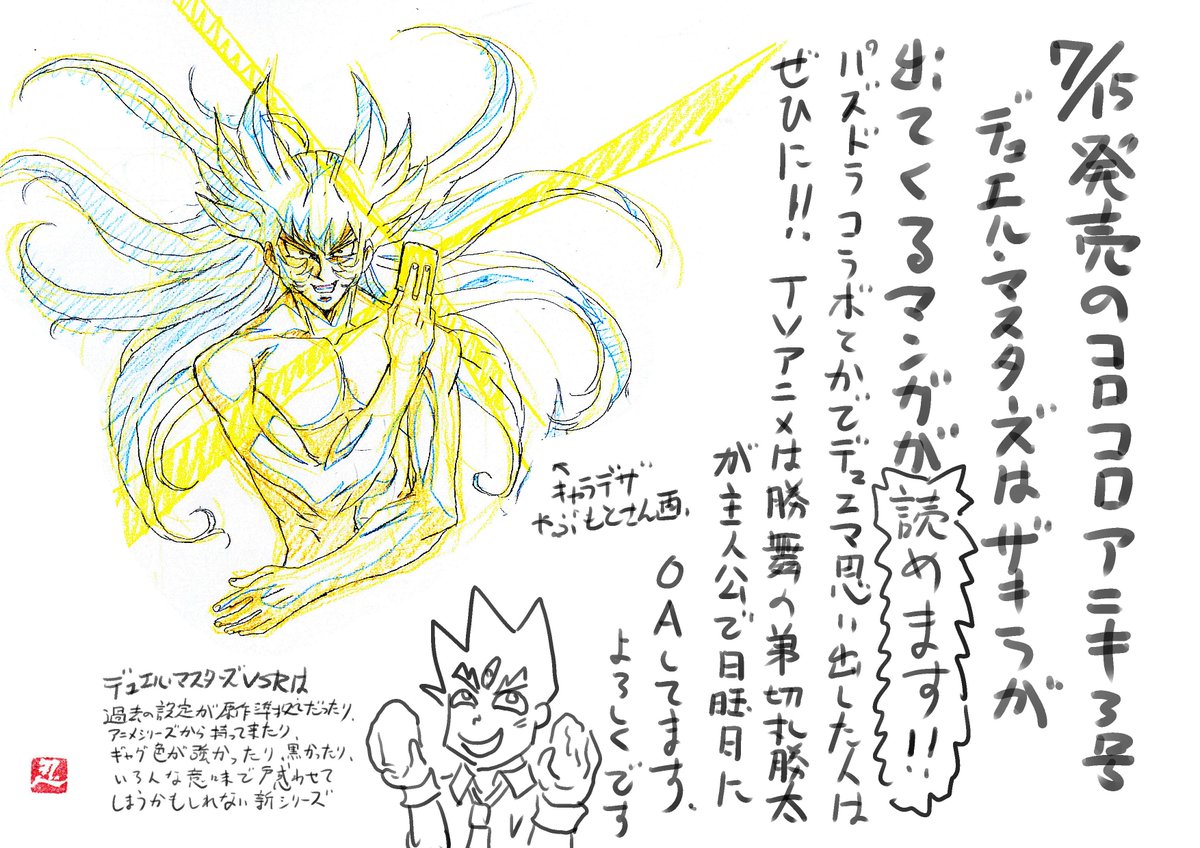 7/15発売のコロコロアニキ3号
デュエル・マスターズはザキラが
出てくるマンガが読めます!!
パズドラコラボとかでデュエマ思い出した人は
ぜひに!! TVアニメは勝舞の弟切札勝太
が主人公で日曜日に
OAしてます。
よろしくです
↑キャラデザ
やぶもとさん画。
デュエル・マスターズVSRは
過去の設定が原作準拠だったり、
アニメシリーズから持って来たり、
ギャグ色が強かったり、黒かったり、
いろんな意味で戸惑わせて
しまうかもしれない新シリーズ